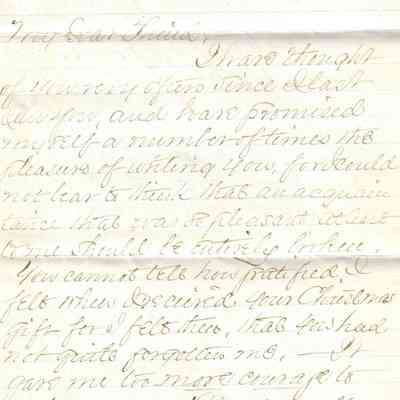 My Dear Friend,
I have thought
of you very often since I last
saw you, and have promised
myself a number of times the
pleasure of writing you, for I could
not bear to think that an acquain
tance that was so pleasant at least
to me should be entirely broken.
You cannot tell how gratified I
felt when I received your Christmas
gift for I felt then, that you had
not quite forgotten me. — It
gave me too more courage to